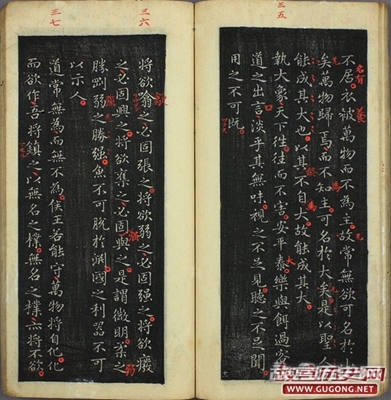 三五
不居衣被萬物而不為主故常無欲可名於小
矣萬物歸焉而不知主可名於大矣是以聖人
能成其大也以其不自大故能成其大
執大象天下往往而不害安平泰樂與餌過客
道之出言淡乎其無味視之不足見聽之不足聞
用之不可既
三六
將欲翕之必固張之將欲弱之必固強之將欲廢
之必固興之將欲奪之必固與之是謂微明柔之
勝剛弱之勝強魚不可脫於淵國之利器不可
以示人
三七
道常無為而無不為侯王若能守萬物將自化化
而欲作吾將鎮之以無名之樸無名之樸亦將不欲
故宫历史网
WWW.GUGONG.NET